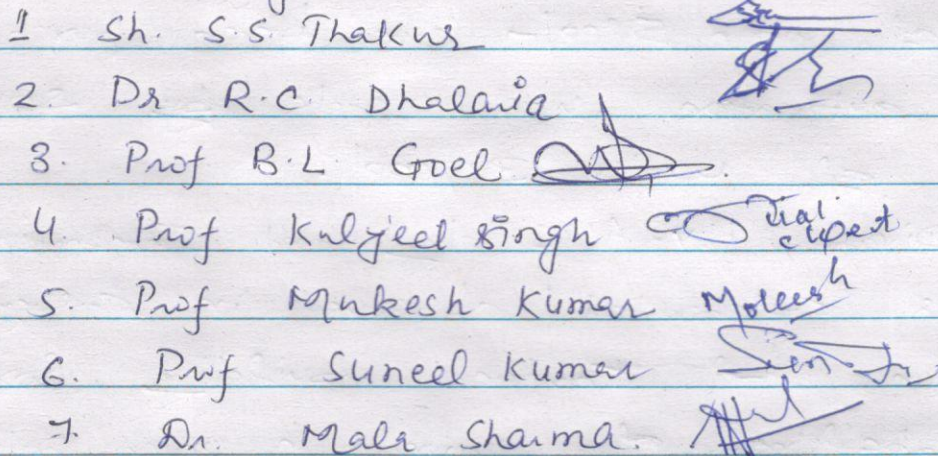 1 Sh. S.S. Thakur
2. Dr R.C. Dhalaria
3. Prof B.L Goel
4. Prof Kuljeel Singh
5. Prof Mukesh Kumar Mukesh
6. Prof Suneel Kumar
7. Dr. Mala Sharma.